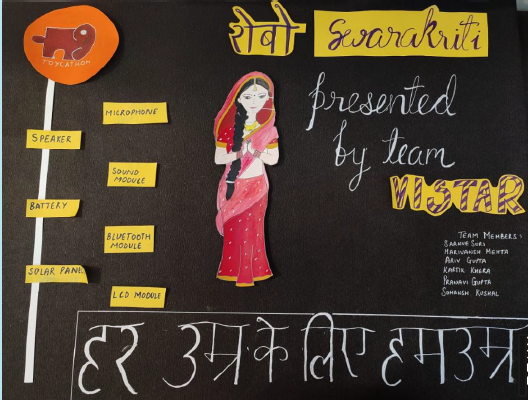 TOYCATHON
रोबो Swarakriti
presented
by team
VISTAR
MICROPHONE
SPEAKER
SOUND
MODULE
BATTERY
BLUETOOTH
MODULE
SOLAR PANEL
LCD MODULE
TEAM MEMBERS:
SAANVE SURI
HARIVANSH MEHTA
ARIV GUPTA
KARTIK KHERA
PRANAVI GUPTA
SUHANSH KUSHAL
हर उम्र के लिए हमउम्र